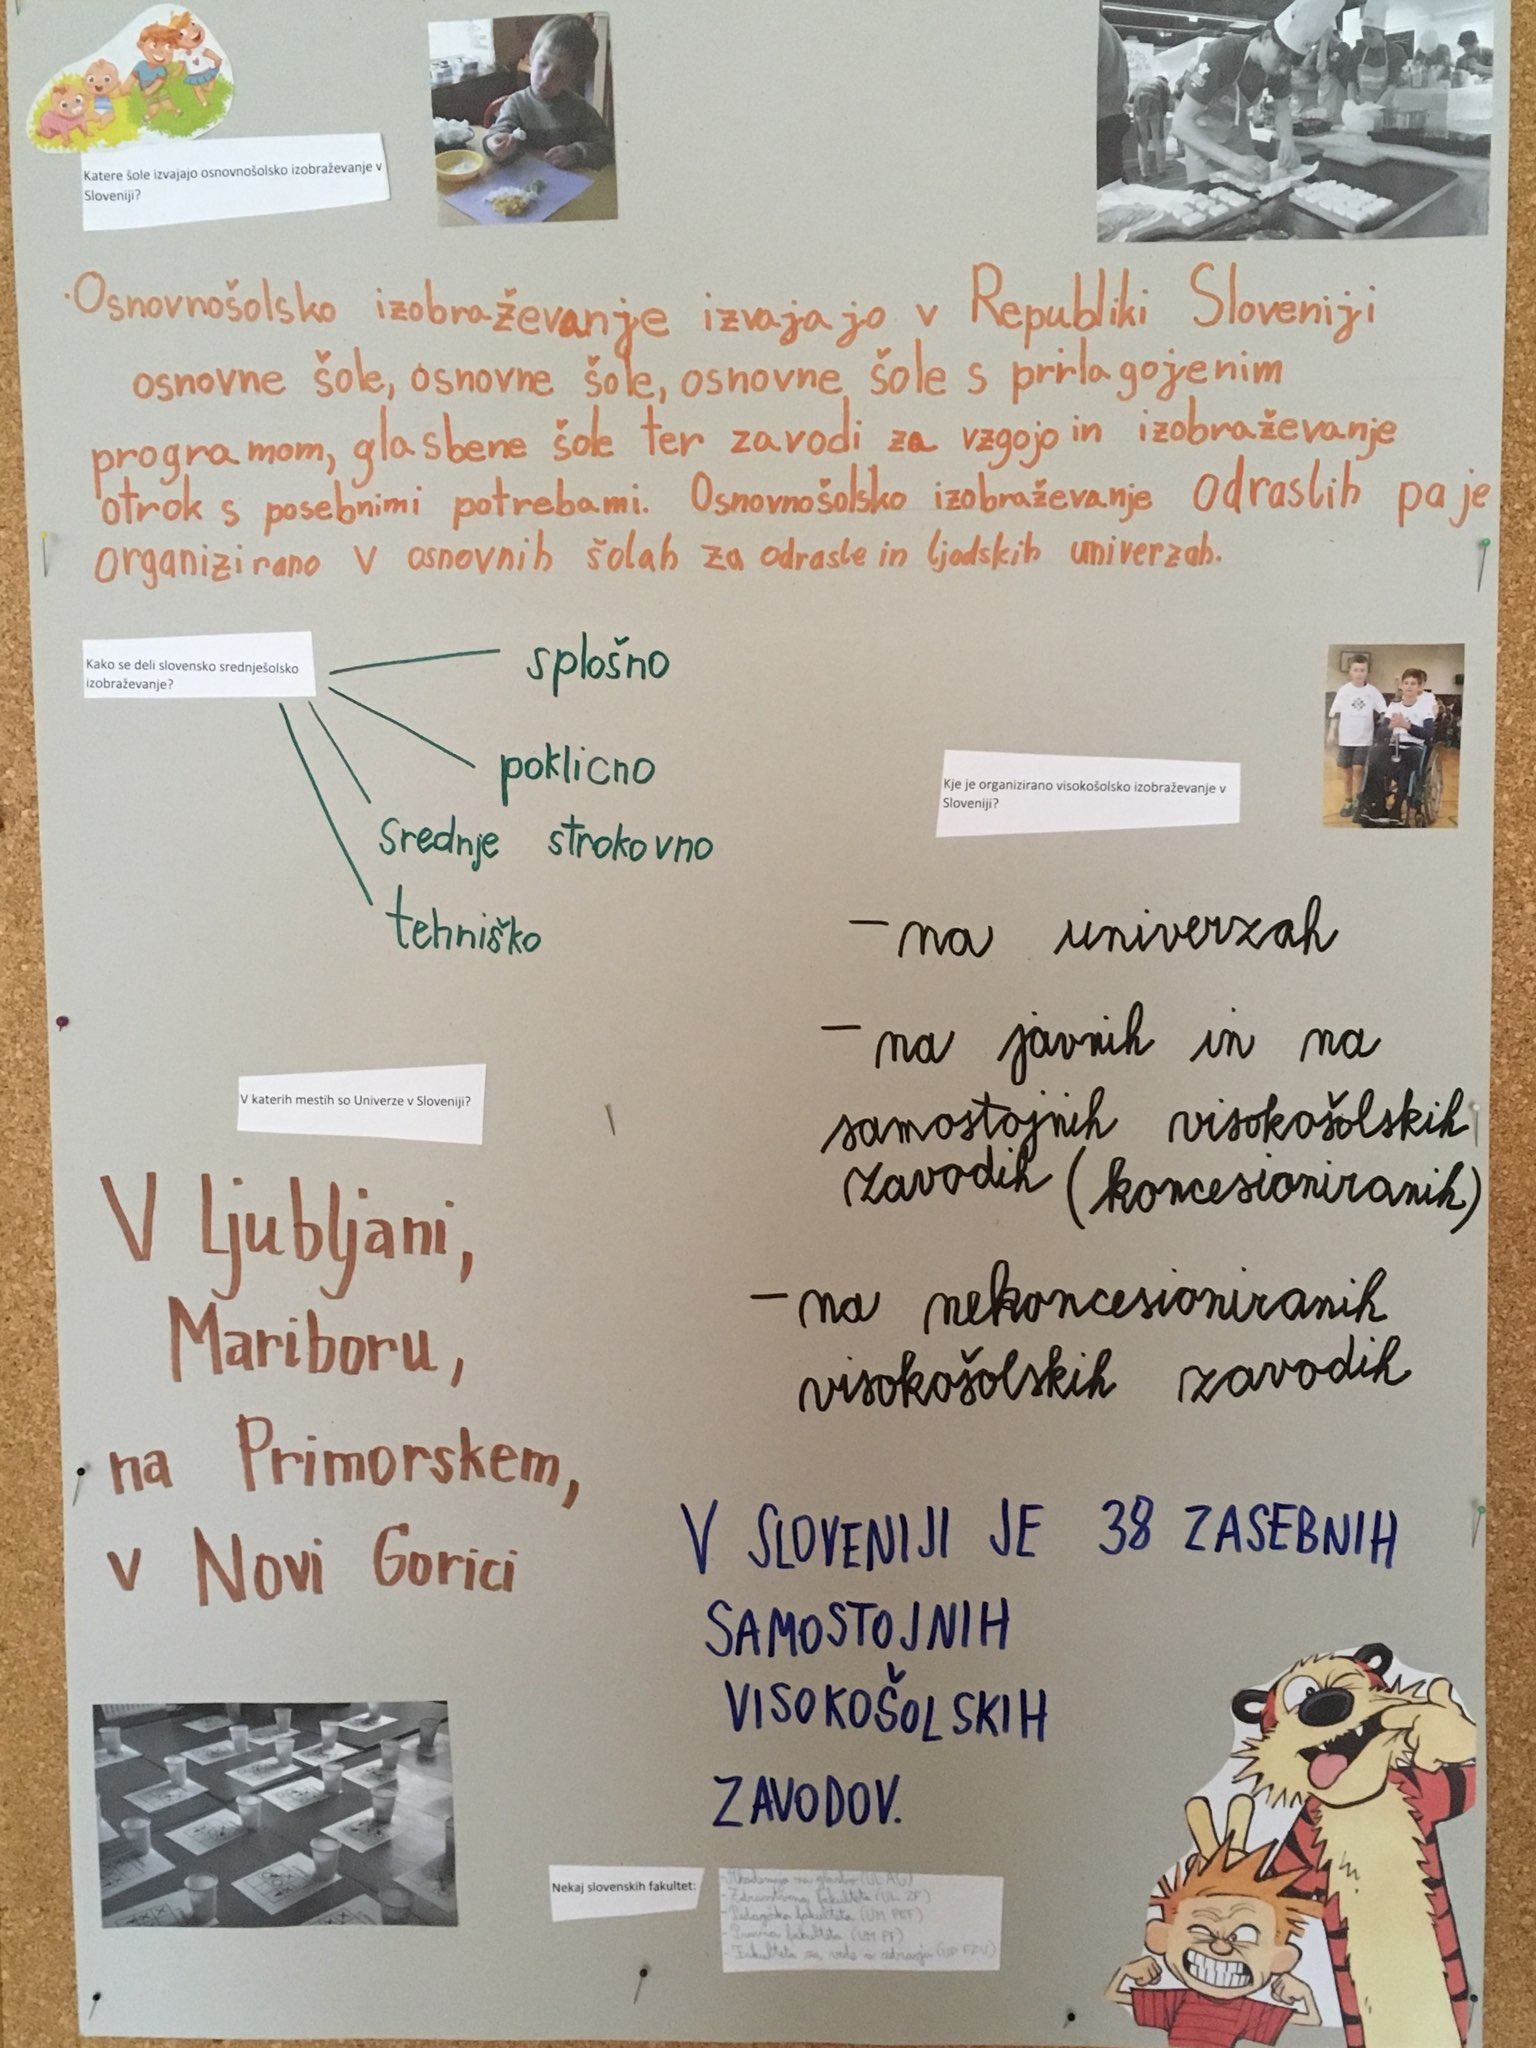 Katere šole izvajajo osnovnošolsko izobraževanje v
Sloveniji?
·Osnovnošolsko izobraževanje izvajajo v Republiki Sloveniji
osnovne šole, osnovne šole, osnovne šole s prrlagojenim
programom, glasbene šole ter zavodi za vzgojo in izobraževanje
otrok s posebnimi potrebami. Osnovnošolsko izobraževanje odraslih pa je
organizirano v osnovnih šolah za odrasle in ljudskih univerzah.
Kako se deli slovensko srednješolsko
izobraževanje?
splošno
poklicno
srednje strokovno
tehniško
Kje je organizirano visokošolsko izobraževanje v
Sloveniji?
– na univerzah
– na javnih in na
samostojnih visokošolskih
zavodih (koncesioniranih)
– na nekoncesioniranih
visokošolskih zavodih
V katerih mestih so Univerze v Sloveniji?
V Ljubljani,
Mariboru,
na Primorskem,
v Novi Gorici
V SLOVENIJI JE 38 ZASEBNIH
SAMOSTOJNIH
VISOKOŠOLSKIH
ZAVODOV.
Nekaj slovenskih fakultet:
- Akademija za glasbo (UL AG)
- Zdravstvena fakulteta (UL ZF)
- Pedagoška fakulteta (UM PEF)
- Pravna fakulteta (UM PF)
- Fakulteta za vede o zdravju (UP FZV)